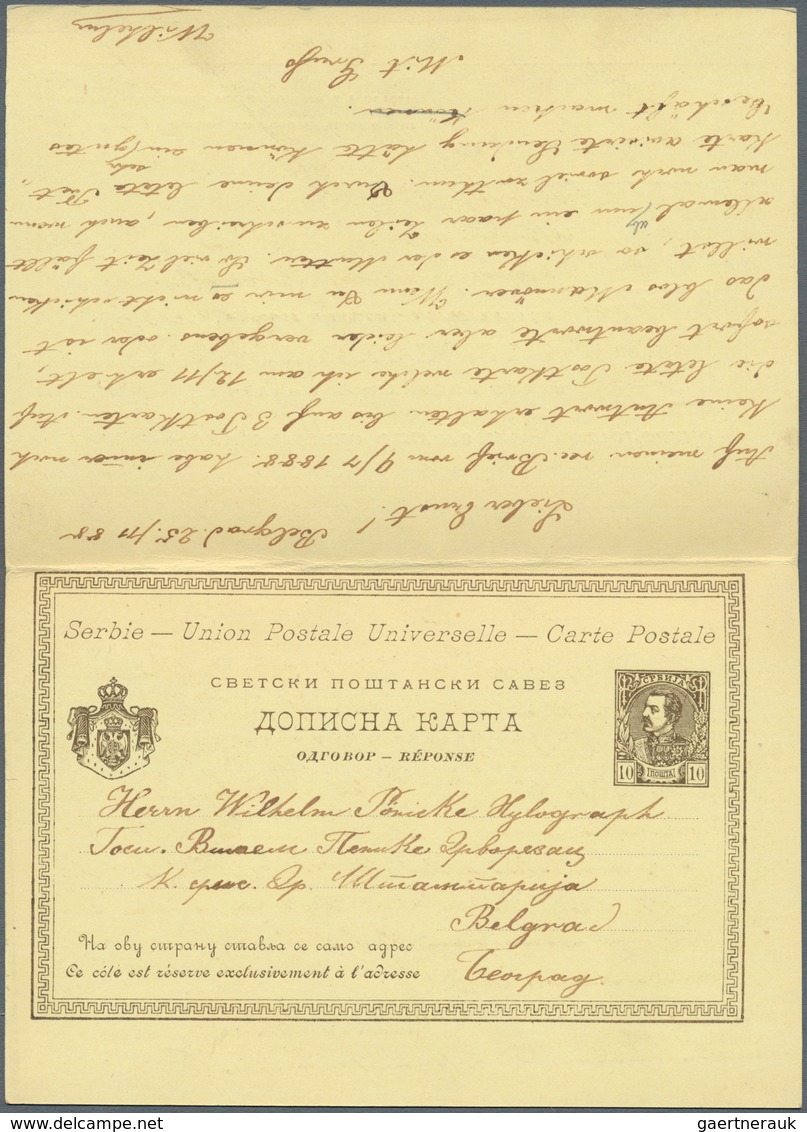 Belgrad 25./11 88
Lieber Ernst!
Auf meinen rec. Brief vom 9/7 1888. habe immer noch
keine Antwort erhalten bis auf 3 Postkarten. Auf
die letzte Postkarte welche ich am 12/11 erhielt,
sofort beantworte aber leider vergebens oder ist
das blos Mannöver. Wenn Du mir es nicht schicken
willst, so schicken es der Mutter. So viel Zeit hällt
allemal um ein paar Zeilen zu schreiben, auch wenn
man noch soviel zu thun. Durch deine letzte Post
Karte avisirte Sendung hätte können ein sehr gutes
Geschäft machen.
Mit Gruß
Wilhelm
Serbie — Union Postale Universelle — Carte Postale
СВЕТСКИ ПОШТАНСКИ САВЕЗ
ДОПИСНА КАРТА
ОДГОВОР — RÉPONSE
СРБИЈА
10 ПОШТА 10
Herrn Wilhelm Pönicke Xylograph
Госп. Вилхелм Пенике Дрворезац
К. срп. Др. Штампарија
Belgrad
Београд.
На ову страну ставља се само адрес
Ce côté est réserve exclusivement à l'adresse
gaertnerauk